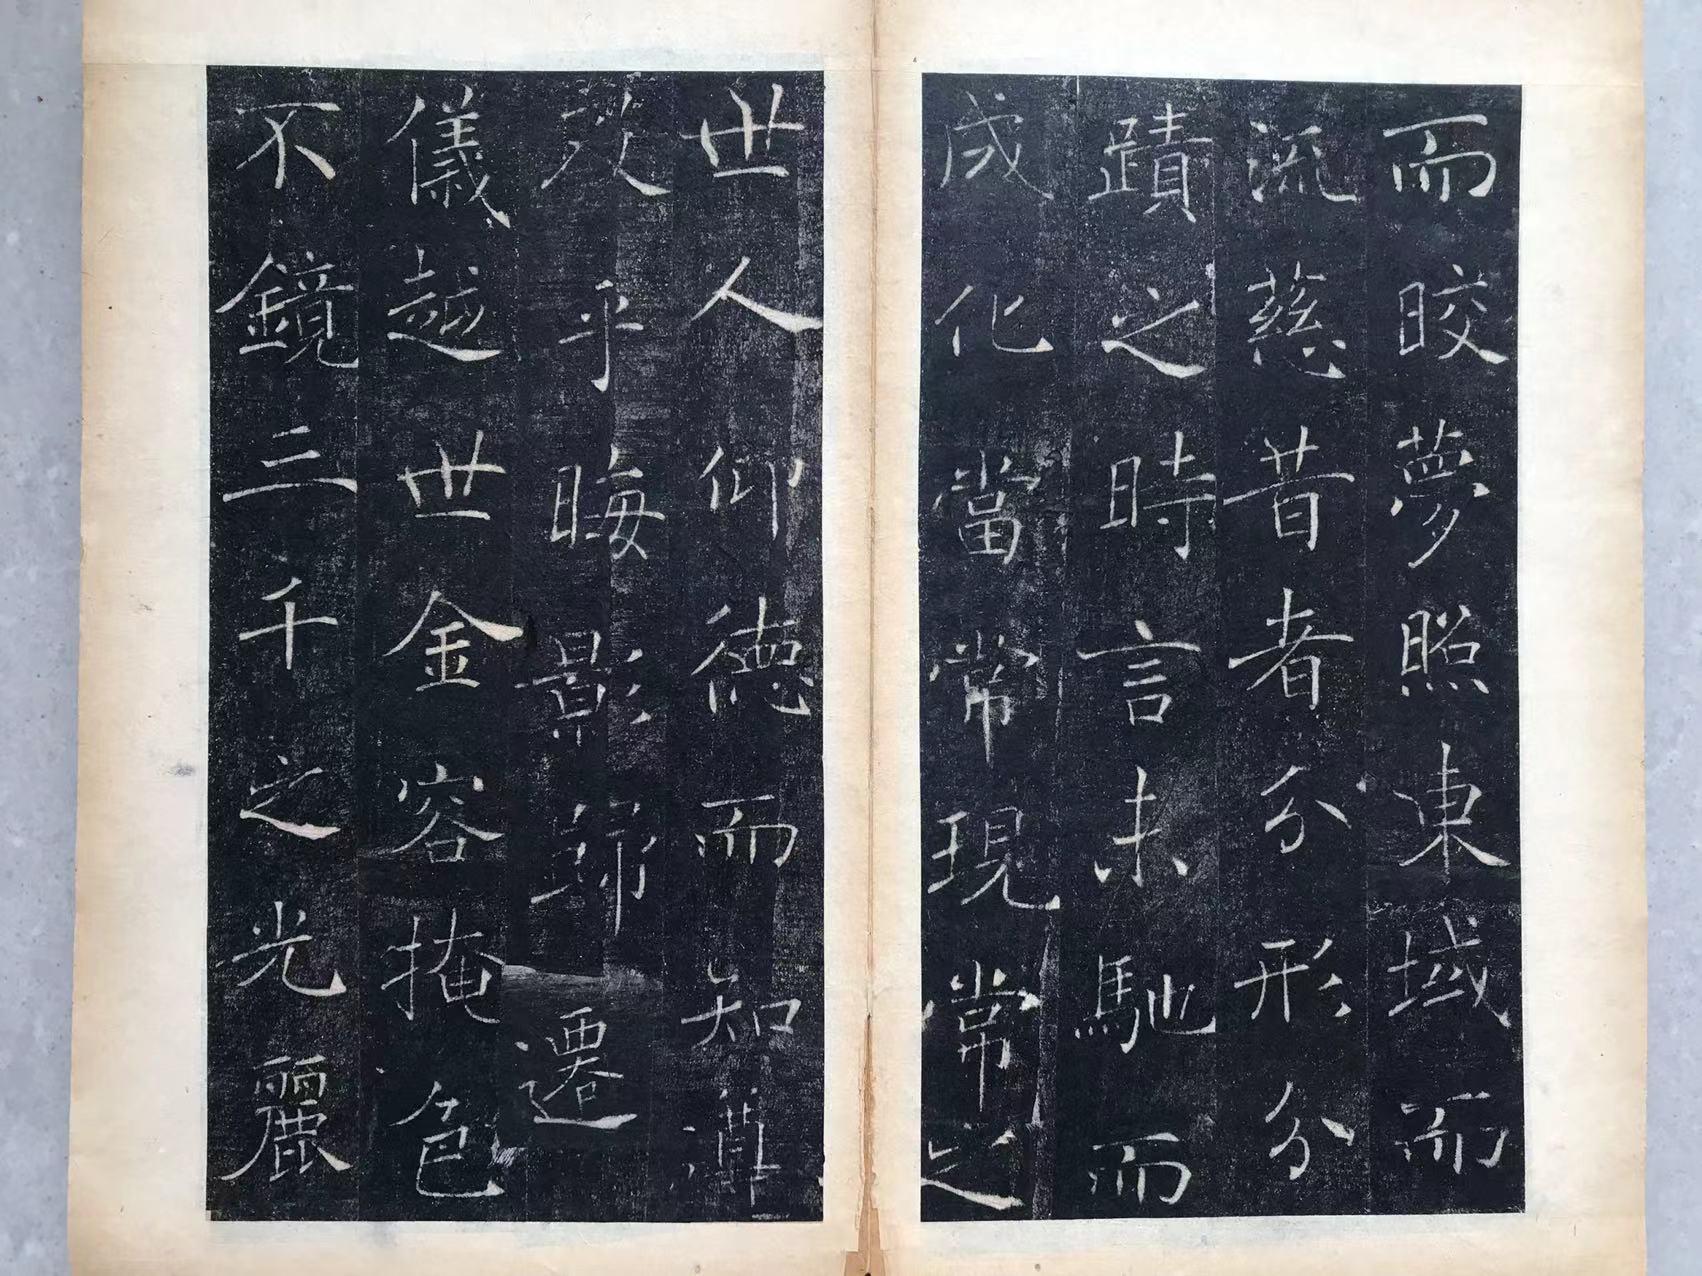 而晈夢照東域而
流慈昔者分形分
蹟之時言未馳而
成化當常現常之
世人仰德而知
及乎晦影歸遷
儀越世金容掩色
不鏡三千之光麗